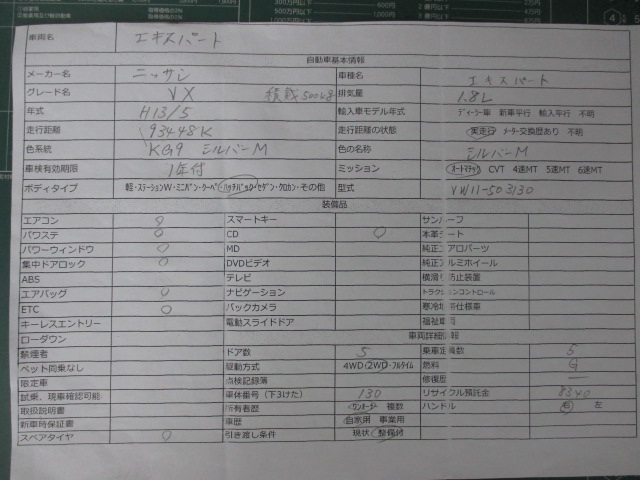 車両名 エキスパート
自動車基本情報
メーカー名 ニッサン 車種名 エキスパート
グレード名 VX 積載500kg 排気量 1.8L
年式 H13/5 輸入車モデル年式 ディーラー車 新車平行 輸入平行 不明
走行距離 93448K 走行距離の状態 実走行 メーター交換歴あり 不明
色系統 KG9 シルバーM 色の名称 シルバーM
車検有効期限 1年付 ミッション オートマチック CVT 4速MT 5速MT 6速MT
ボディタイプ 軽・ステーションW・ミニバン・クーペ・ハッチバック・セダン・クロカン・その他 型式 VW11-503130
装備品
エアコン スマートキー サンルーフ
パワステ CD 本革シート
パワーウィンドウ MD 純正エアロパーツ
集中ドアロック DVDビデオ 純正アルミホイール
ABS テレビ 横滑り防止装置
エアバッグ ナビゲーション トラクションコントロール
ETC バックカメラ 寒冷地帯仕様車
キーレスエントリー 電動スライドドア 福祉車両
ローダウン 車両詳細情報
禁煙者 ドア数 5 乗車定員数 5
ペット同乗なし 駆動方式 4WD・2WD・フルタイム 燃料 G
限定車 点検記録簿 修復歴 ー
試乗、現車確認可能 車体番号(下3けた) 130 リサイクル預託金 8340
取扱説明書 所有者歴 ワンオーナー 複数 ハンドル 右 左
新車時保証書 車歴 自家用 事業用
スペアタイヤ 引き渡し条件 現状 整備付